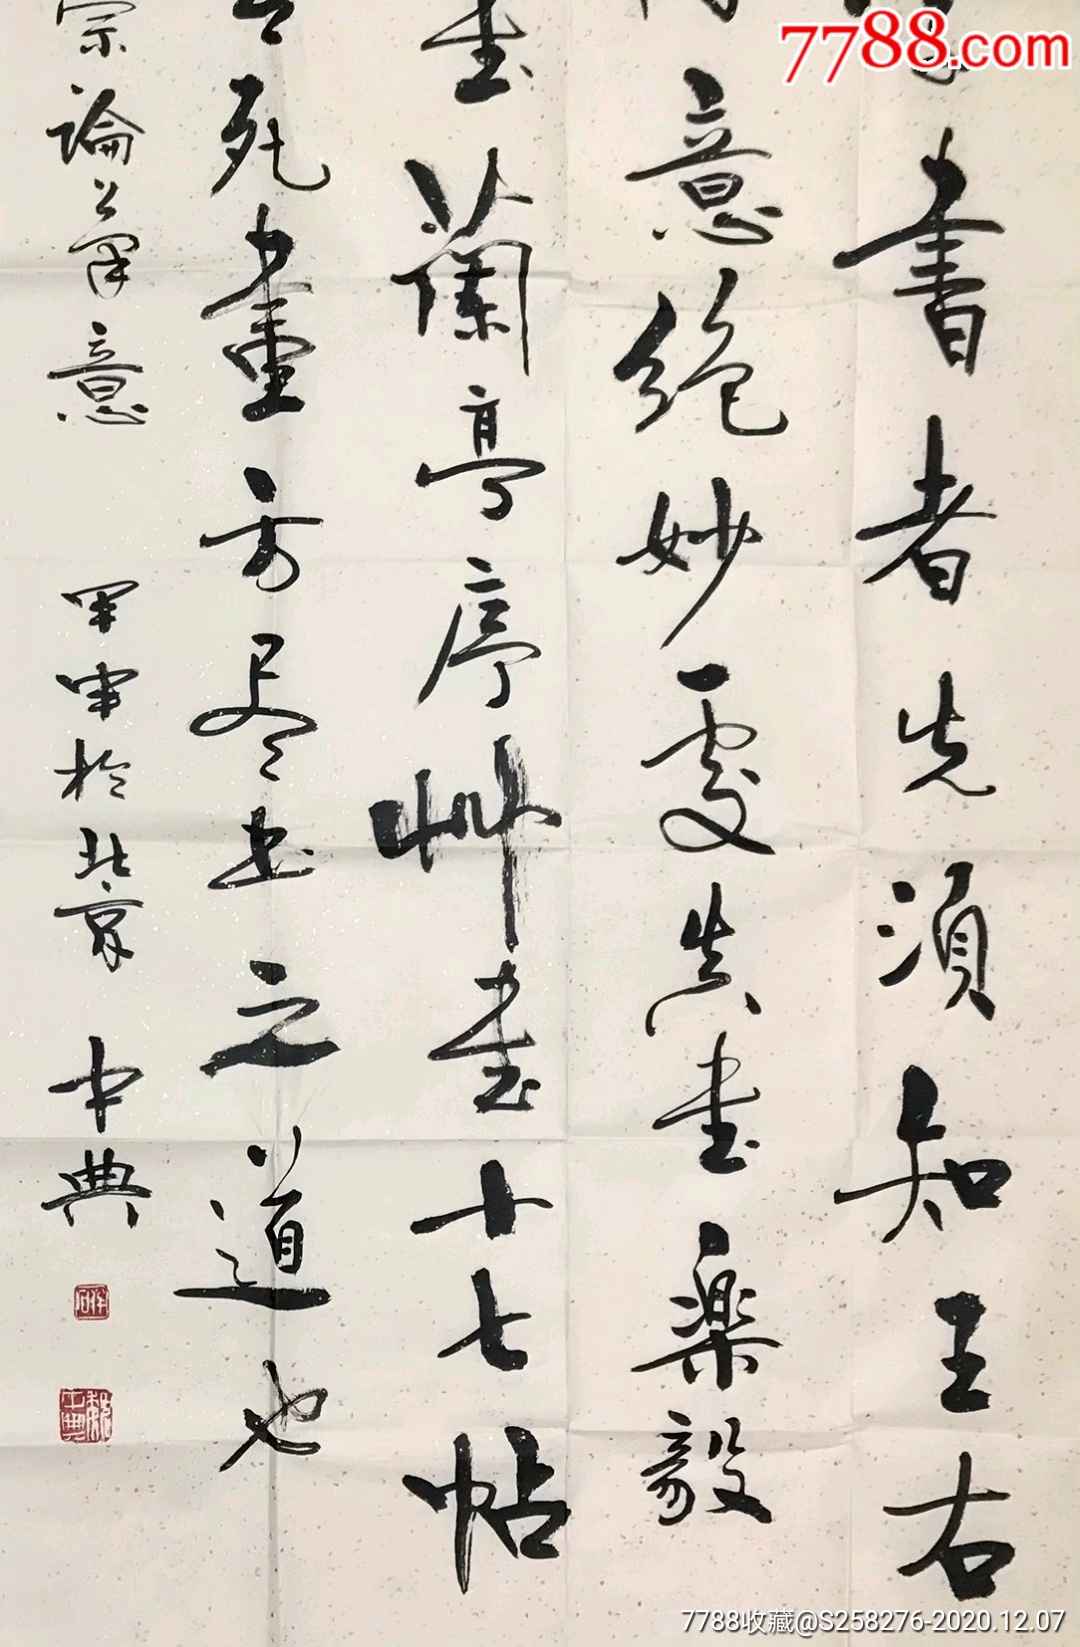 7788.com
書者先須知王右
意絶妙處真書樂毅
書蘭亭序艸書十七帖
死畫方尽書之道也
宗論筆意 甲申於北京 中典
7788收藏@S258276-2020.12.07